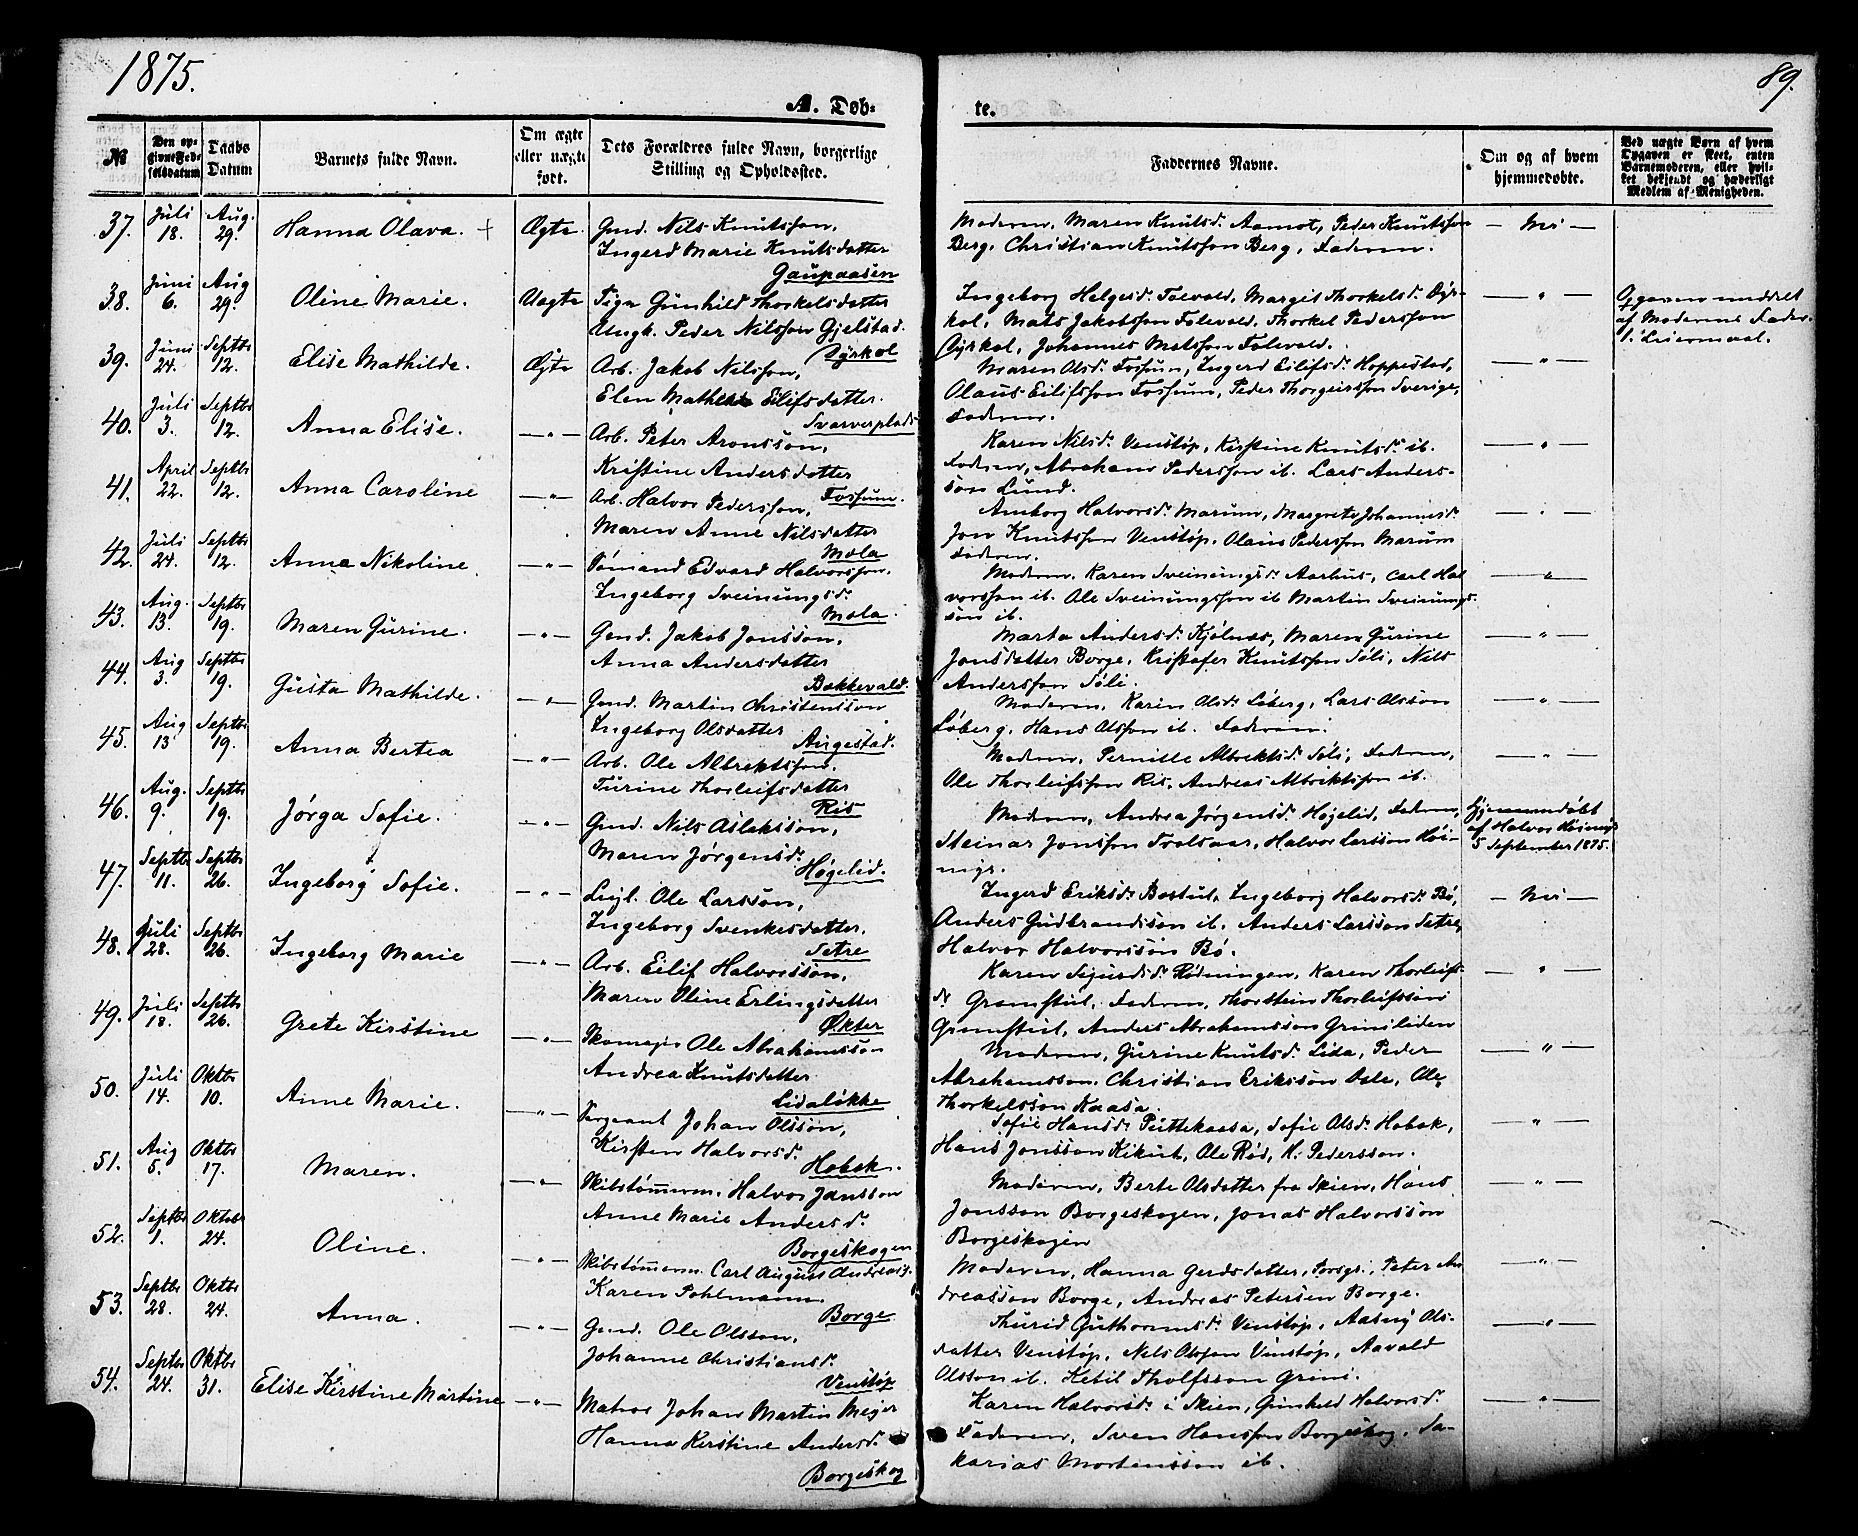 1875.
89.
A. Døb-
te.
№
Den opgivne Fødselsdatum
Daabs Datum
Barnets fulde Navn.
Om ægte eller uægte født.
Dets Forældres fulde Navn, borgerlige Stilling og Opholdssted.
Faddernes Navne.
Om og af hvem hjemmedøbte.
Ved uægte Børn af hvem Opgaven er skeet, enten Barnemoderen, eller hvilket bekjendt og hæderligt Medlem af Menigheden.
37. Juli 18. Aug. 29. Hanna Olava. + Ægte Gmd. Nils Knutsson,
Ingerd Marie Knutsdatter
Gaupaasen
Moderen, Maren Knutsd. Aamot, Peder Knutsson
Berg, Christian Knutsson Berg, Faderen.
— Nei —
38. Juni 6. Aug 29. Oline Marie. Uægte Pige Gunhild Thorkelsdatter
Ungk. Peder Nilsson Gjelstad.
Dyrkol
Ingeborg Helgesd. Folevald, Margit Thorkelsd. Dyr-
kol, Mats Jakobsson Folevald, Thorkel Pedersson
Dyrkol, Johannes Matsson Folevald.
— " —
Opgaven meddelt
af Moderens Fader.
1. Leiermaal.
39. Juni 24. Septbr 12. Elise Mathilde. Ægte Arb. Jakob Nilsson,
Elen Mathea Eilifsdatter.
Svarverplads
Maren Olsd. Fossum, Ingerd Eilifsd. Hoppestad,
Olaus Eilifsson Fossum, Peder Thorgeirsson Sverige,
Faderen.
— " —
40. Juli 3. Septbr 12. Anna Elise. — " — Arb. Peter Aronsson,
Kristine Andersdatter
Fossum.
Karen Nilsd. Venstøp, Kirstine Knutsd. ib.
Faderen, Abraham Pedersson ib. Lars Anders-
son Lund.
— " —
41. April 22. Septbr 12. Anna Caroline — " — Arb. Halvor Pedersson,
Maren Anne Nilsdatter
Mæla
Amborg Halvorsd. Marum, Margrete Johannesd.
Jon Knutsson Venstøp, Olaus Pedersson Marum
Faderen.
— " —
42. Juli 24. Septbr 12. Anna Nikoline. — " — Sømand Edvard Halvorsson.
Ingeborg Sveinungsd.
Mæla.
Moderen, Karen Sveinungsd. Aarhus, Carl Hal
vorsson ib. Ole Sveinungsson ib Martin Sveinungs-
son ib.
— " —
43. Aug. 13. Septbr 19. Maren Gurine. — " — Gmd. Jakob Jonsson,
Anna Andersdatter
Bakkevald.
Marta Andersd. Kjølnes, Maren Gurine
Jonsdatter Borge, Kristofer Knutsson Søli, Nils
Andersson Søli.
— " —
44. Aug 3. Septbr 19. Gusta Mathilde. — " — Gmd. Martin Christensson
Ingeborg Olsdatter
Augestad.
Moderen, Karin Olsd. Løberg, Lars Olsson
Løberg, Hans Olsson ib. Faderen.
— " —
45. Aug 13 Septbr 19. Anna Bertea — " — Arb. Ole Albrektsson.
Turine Thorleifsdatter
Ris
Moderen, Pernille Albrektsd. Søli, Faderen,
Ole Thorleifsson Ris, Andreas Albrektsson ib.
— " —
46. Aug. 9. Septbr 19. Jørga Sofie. — " — Gmd. Nils Aslaksson,
Maren Jørgensd.
Høgelid.
Moderen, Andrea Jørgensd. Høgelid, Faderen,
Steinar Jonsson Tvalsaar, Halvor Larsson Høi-
nigs.
Hjemmedøbt
af Halvor Høinigs
5 September 1875.
47. Septbr 11. Septbr 26. Ingeborg Sofie. — " — Leijl. Ole Larsson,
Ingeborg Svenkesdatter,
Setre
Ingerd Eriksd. Bostut, Ingeborg Halvorsd. Bø,
Anders Gudbrandsson ib. Anders Larsson Setre,
Halvor Halvorsson Bø.
— Nei —
48. Juli 28. Septbr 26. Ingeborg Marie — " — Arb. Eilif Halvorsson,
Maren Oline Erlingsdatter
Økter
Karen Sjursd. Rødningen, Karen Thorleifs-
d. Gromstul, Faderen, Thorstein Thorleifsson
Gromstul, Anders Abrahamsson Grinileiden
— " —
49. Juli 18. Septbr 26. Grete Kirstine — " — Skomager Ole Abrahamsson
Andrea Knutsdatter
Lidaløkke
Moderen, Gurine Knutsd. Lida, Peder
Abrahamsson, Christian Eriksson Dale, Ole
Thorkelsson Kaasa.
— " —
50. Juli 14. Oktbr 10. Anne Marie. — " — Sergeant Johan Olsson,
Kirsten Halvorsd.
Hobæk.
Sofie Hansd. Pættekaasa, Sofie Olsd. Hobæk,
Hans Jonsson Kikut, Ole Rød, K. Pedersson.
— " —
51. Aug 5. Oktbr 17. Maren. — " — Skibstømmerm. Halvor Jansson
Anne Marie Andersd.
Borgeskogen
Moderen, Berte Olsdatter fra Skien, Hans
Jonsson Borgeskogen, Jonas Halvorsson
Borgeskogen
— " —
52. Septbr 1. Oktober 24. Oline. — " — Skibstømmerm. Carl August Andreass.
Karen Pohlmann.
Borge
Moderen, Hanna Gerdsdatter, Porsgr., Peter An
dreasson Borge, Andreas Petersen Borge.
— " —
53. Septbr 28. Oktbr 24. Anna. — " — Gmd. Ole Olsson,
Johanne Christiansd.
Venstøp
Thurid Guthormsd. Venstøp, Aasny Ols-
datter Venstøp, Nils Olsson Venstøp, Aavald
Olsson ib. Ketil Tholfsson Grini.
— " —
54. Septbr 24. Oktbr 31. Elise Kirstine Martine — " — Matros Johan Martin Meyer
Hanna Kirstine Andersd.
Borgeskog
Karen Halvorsd. i Skien, Gunhild Halvorsd.
Faderen, Sven Hansson Borgeskog, Sa-
karias Mortensson ib.
— " —